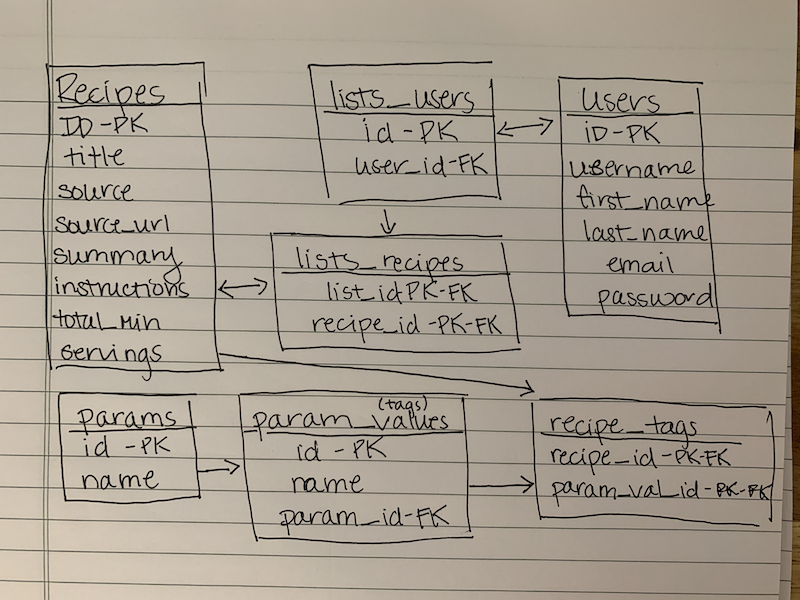 Recipes
ID-PK
title
source
source_url
summary
instructions
total_min
servings
lists_users
id-PK
user_id-FK
users
iD-PK
username
first_name
last_name
email
password
lists_recipes
list_id PK-FK
recipe_id-PK-FK
params
id-PK
name
param_values (tags)
id-PK
name
param_id-FK
recipe_tags
recipe_id-PK-FK
param_val_id-PK-FK